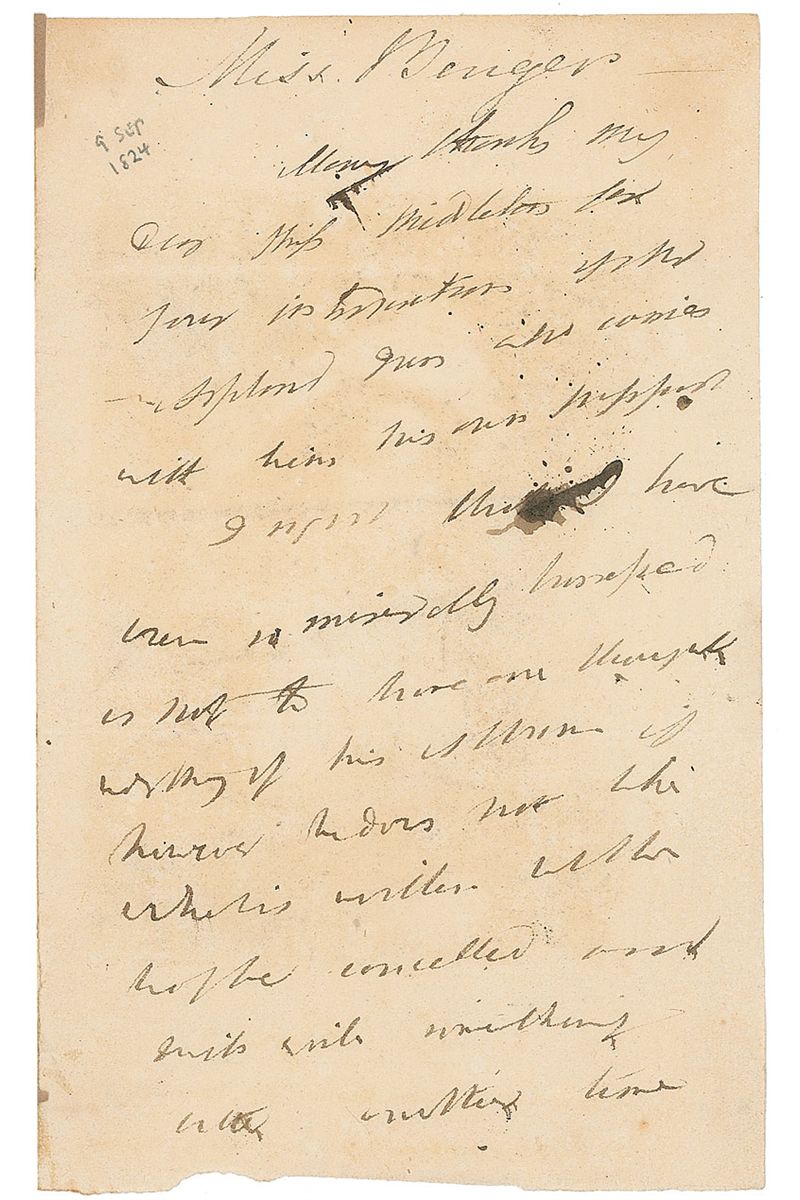 Miss. Benger
9 SEP
1824
Many thanks my
Dear Miss Middleton for
your introduction of the
who comes
with him his own support
I regret that I have
been so miserably
as not to have one thought
worthy of his Album if
however he does not like
what is written let the
be cancelled and
write something
another time